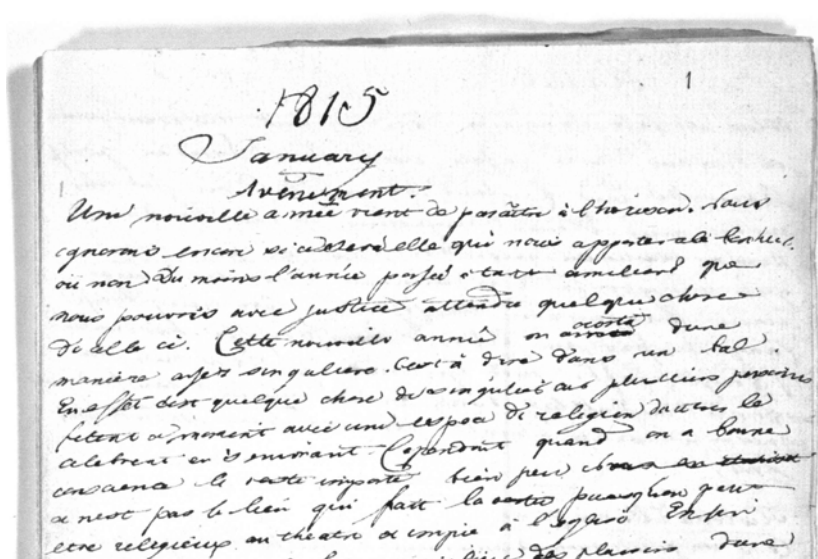 1
1815
January
Avénement.
Une nouvelle année vient de paraître à l'horison. Nous
ignorons encore si ce sera elle qui nous apportera le bonheur
ou non Du moins l'année passée était que
nous pouvons avec justice attendre quelque chose
de elle ci. Cette nouvelle année on dune
manière assez singuliere. C'est à dire dans un bal.
En effet c'est quelque chose de singulier car plusieurs personnes
fêtent ce moment avec une espece de religion dautres le
célebrent en s'enivrant. Cependant quand on a bonne
conscience le reste importe bien peu
ce nest pas le lieu qui fait la vertu puisqu'on peut
etre religieux au théatre et impie à l'eglise Enfin
de plaisir dune